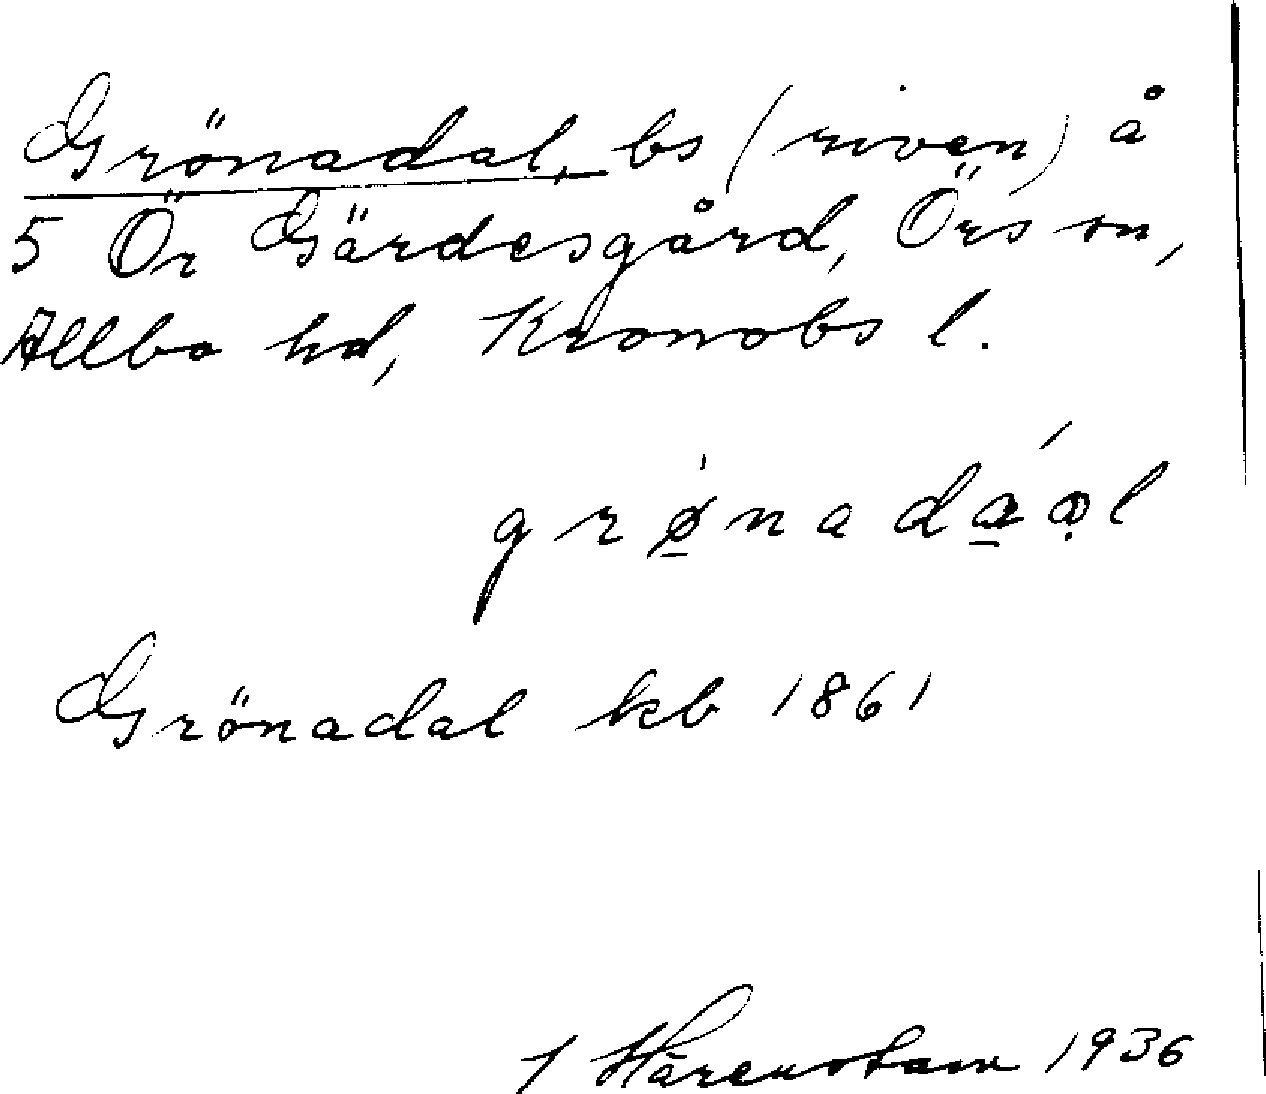 Grönadal, bs (riven) å
5 Ör Gärdesgård, Örs sn,
Allbo hd, Kronobs l.
grǿ̲nadá̲ạl
Grönadal kb 1861
J Hårenstam 1936